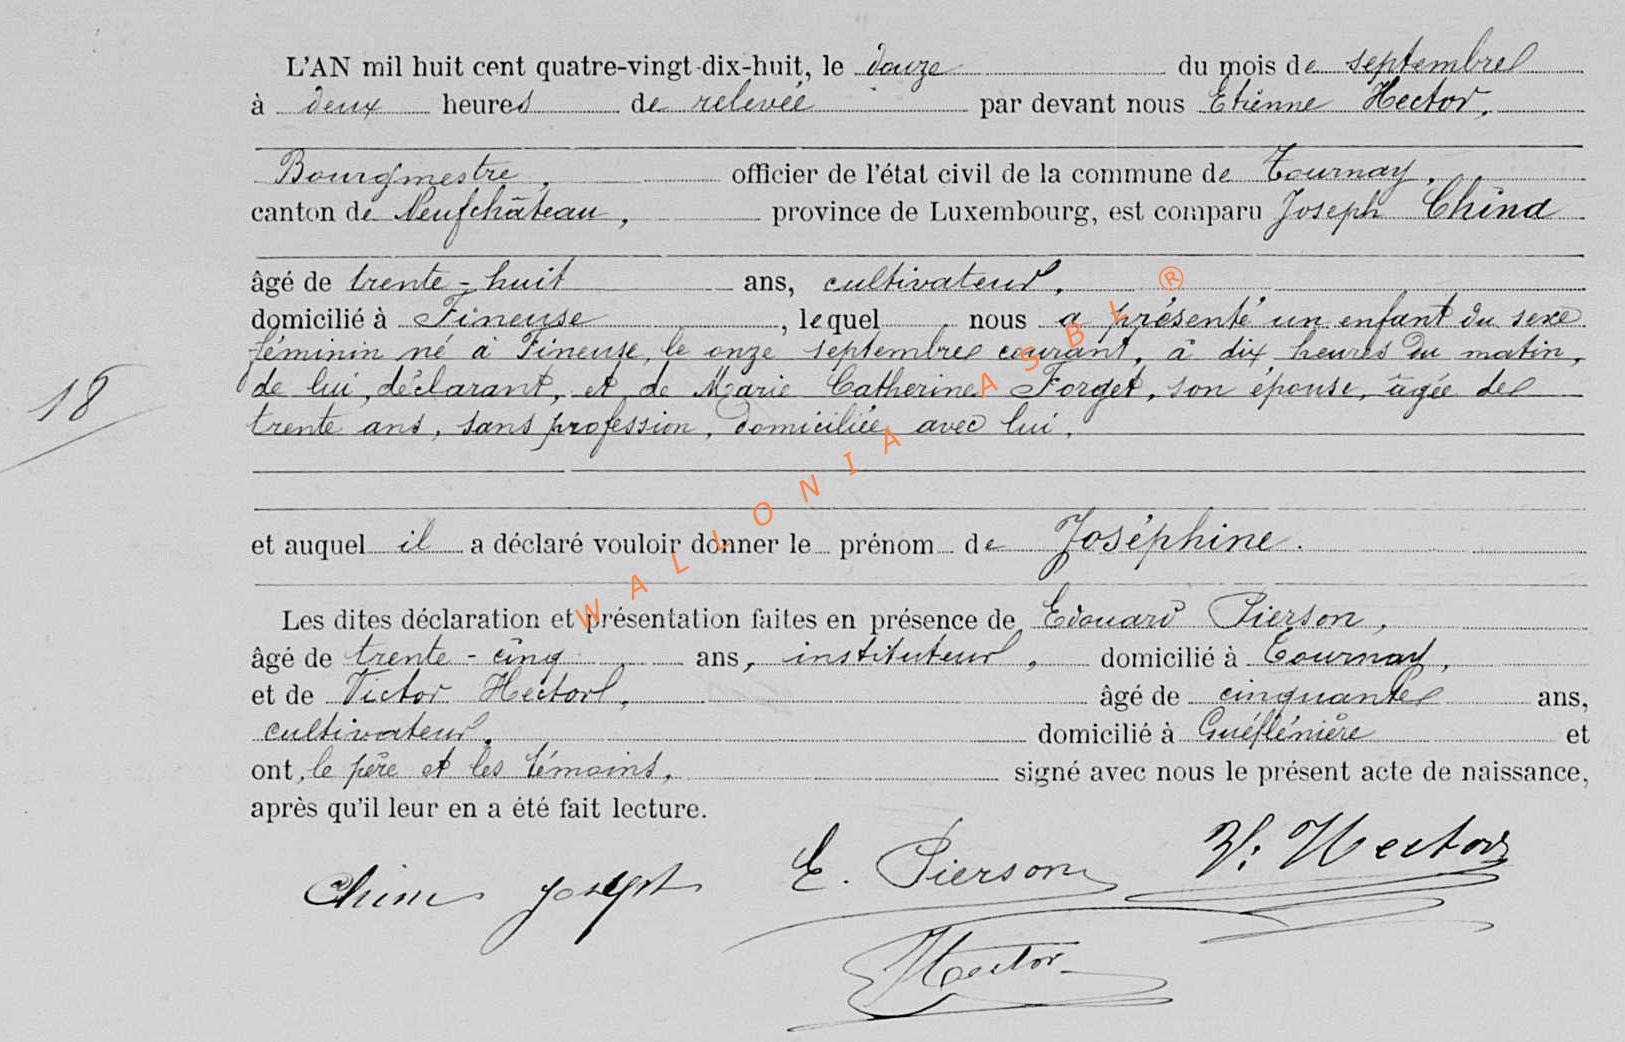 L'AN mil huit cent quatre-vingt-dix-huit, le douze du mois de septembre
à deux heures de relevée par devant nous Etienne Hector,
Bourgmestre, officier de l'état civil de la commune de Tournay,
canton de Neufchâteau, province de Luxembourg, est comparu Joseph China
âgé de trente-huit ans, cultivateur,
domicilié à Fineuse, lequel nous a présenté un enfant du sexe
féminin né à Fineuse, le onze septembre courant, à dix heures du matin,
18
de lui, déclarant, et de Marie Catherine Forget, son épouse, âgée de
trente ans, sans profession, domiciliée avec lui,
et auquel il a déclaré vouloir donner le prénom de Joséphine.
Les dites déclaration et présentation faites en présence de Edouard Pierson,
âgé de trente-cinq ans, instituteur, domicilié à Tournay,
et de Victor Hector, âgé de cinquante ans,
cultivateur, domicilié à Guéflénière et
ont, le père et les témoins, signé avec nous le présent acte de naissance,
après qu'il leur en a été fait lecture.
Joseph E. Pierson V. Hector
Hector
WALLONIA ASBL ®